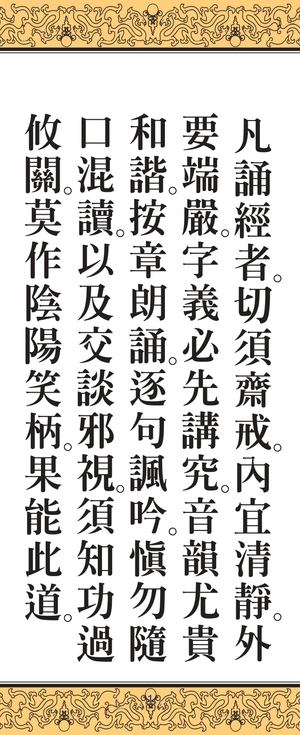 凡誦經者。切須齋戒。內宜清靜。外
要端嚴。字義必先講究。音韻尤貴
和諧。按章朗誦。逐句諷吟。慎勿隨
口混讀。以及交談邪視。須知功過
攸關。莫作陰陽笑柄。果能此道。